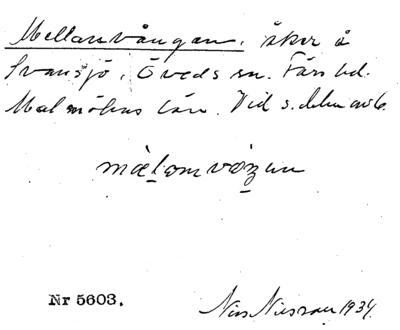 Mellanvångan, åker å
Svansjö, Öveds sn. Färs hd.
Malmöhus län. Vid s.
mälomvången
Nr 5603.
Nils Nilsson 1934.